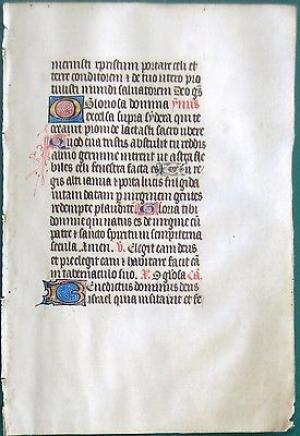 meruisti xpristum portare celi et
terre conditorem et de tuo utero pro
tulisti mundi salvatorem Deo grs
O Gloriosa domina ymus
excelsa supra sydera qui te
creavit provide lactasti sacro ubere
Quod eva tristis abstulit tu reddis
almo germine intrent ut astra fle
biles celi fenestra facta es Tu re
gis alti ianua et porta lucis fulgida
vitam datam per virginem gentes
redempte plaudite Gloria tibi
domine qui natus es de virgine cum
patre et sancto spiritu in sempiterna
secula. Amen. V. Elegit eam deus
et preelegit eam et habitare facit eam
in tabernaculo suo. R. O glosa Ca.
Benedictus dominus deus
israel quia visitavit et fe